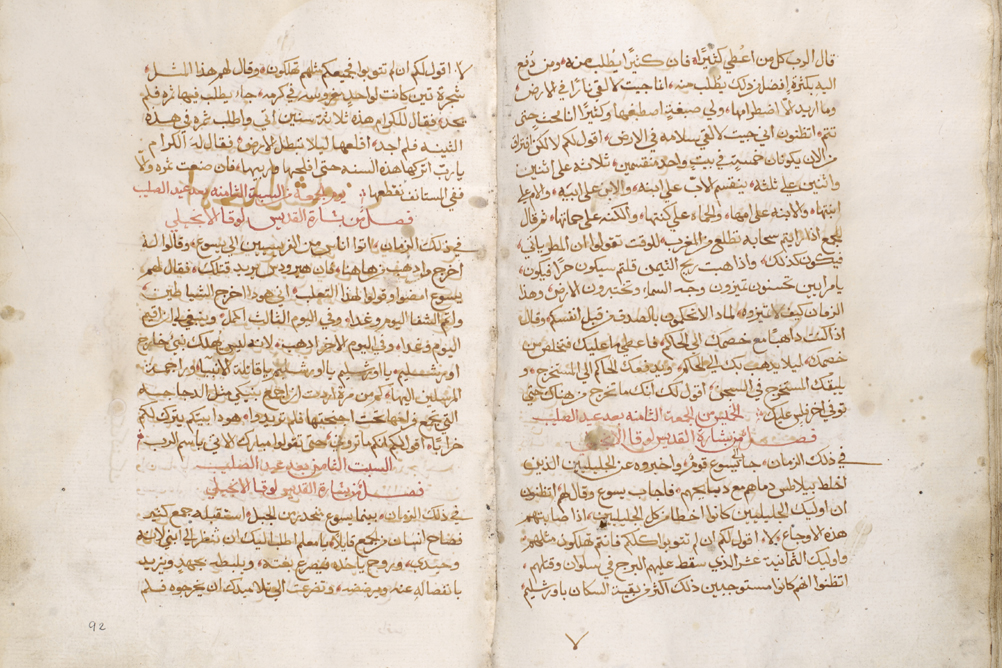 قال الرب كل من اعطي كثيرا فان كثيرا يطلب منه ومن دفع
اليه بكثرة افضل ذلك يطلب منه انا جيت لالقي نارا في الارض
وما اريد الا اضطرامها ولي صبغة اصطبغها وكثيرا انا حتى
تتم اتظنون اني جيت لالقي سلامه في الارض اقول لكم لا لكن افتراق
من الان يكونان خمسة في بيت واحد منقسمين ثلاثه على اثنين
واثنين على ثلثه ينقسم الاب على ابنه والابن على ابيه والام على
ابنتها والابنه على امها والحماه على كنتها والكنه على حماتها ثم قال
للجمع اذا رايتم سحابه تطلع من المغرب للوقت تقولوا ان المطر ياتي
فيكون كذلك واذا هبت ريح التيمن قلتم سيكون حرا فيكون
يا مرايين تحسنون تميزون وجه السما وتختبرون الارض وهذا
الزمان كيف لا تميزوه لماذا لا تحكمون بالصدق من قبل انفسكم وقال
اذا كنت ذاهبا مع خصمك الى الحاكم فاعطي ما عليك فتخلص من
خصمك ليلا يذهب بك الى الحاكم ويدفعك الحاكم الى المستخرج و
يلقيك المستخرج في السجن اقول لك انك ما تخرج من هناك حتى
توفي اخر فلس عليك الخميس من الجمعة الثامنه بعد عيد الصليب
فصل من بشارة القديس لوقا الانجيلي
في ذلك الزمان جا الى يسوع قوم واخبروه عن الجليليين الذين
اخلط بيلاطس دماهم مع دبايحهم فاجاب يسوع وقال لهم اتظنون
ان اوليك الجليليين كانوا اخطا من كل الجليليين اذا صابتهم
هذه الاوجاع لا اقول لكم ان لم تتوبوا كلكم فانتم تهلكون مثلهم
واوليك الثمانية عشر الذي سقط عليهم البرج في سلوان وقتلهم
اتظنوا انهم كانوا مستوجبين ذلك اكثر من بقية السكان باورشليم
لا اقول لكم ان لم تتوبوا فجميعكم مثلهم تهلكون وقال لهم هذا المثل
شجرة تين كانت لواحد مغروسه في كرمه جا يطلب فيها ثره فلم
يجد فقال للكرام هذه ثلاثة سنين اتي واطلب ثره في هذه
التينه فلم اجد اقلعها ليلا تبطل الارض فقال له الكرام
يا رب اتركها هذه السنه حتى افلحها وازبلها فان صنعت ثره والا
ففي المستانف تقطعها يوم الجمعة من السبة الثامنه بعد عيد الصليب
فصل من بشارة القديس لوقا الانجيلي
في ذلك الزمان اتوا اناس من الفريسيين الى يسوع وقالوا له
اخرج واذهب من هاهنا فان هيرودس يريد قتلك فقال لهم
يسوع امضوا وقولوا لهذا الثعلب اني هوذا اخرج الشياطين
واتم الشفا اليوم وغدا وفي اليوم الثالث اكمل وينبغي لي ان اقيم
اليوم وغدا وفي اليوم الاخر اذهب لانه ليس يهلك نبي خارج
اورشليم يا اورشليم يا اورشليم يا قاتلة الانبيا وراجمة
المرسلين اليها كم من مرة اردت ان اجمع بنيكي مثل الدجاجة
التي تجمع فراخها تحت اجنحتها فلم تريدوا هوذا بيتكم يترك لكم
خرابا اقول لكم انكم لا تروني حتى تقولوا مبارك الاتي باسم الرب
السبت الثامن بعد عيد الصليب
فصل من بشارة القديس لوقا الانجيلي
في ذلك الزمان بينما يسوع منحدر من الجبل استقبله جمع كثير
فصاح انسان من الجمع قايلا يا معلم اطلب اليك ان تنظر الى ابني لانه
وحيدي وروح ياخذه فيصرع بغتة ويلبطه بجهد ويزيد
بانفصاله عنه ويرضضه وتضرعت الى تلاميذك ان يخرجوه فلم
92